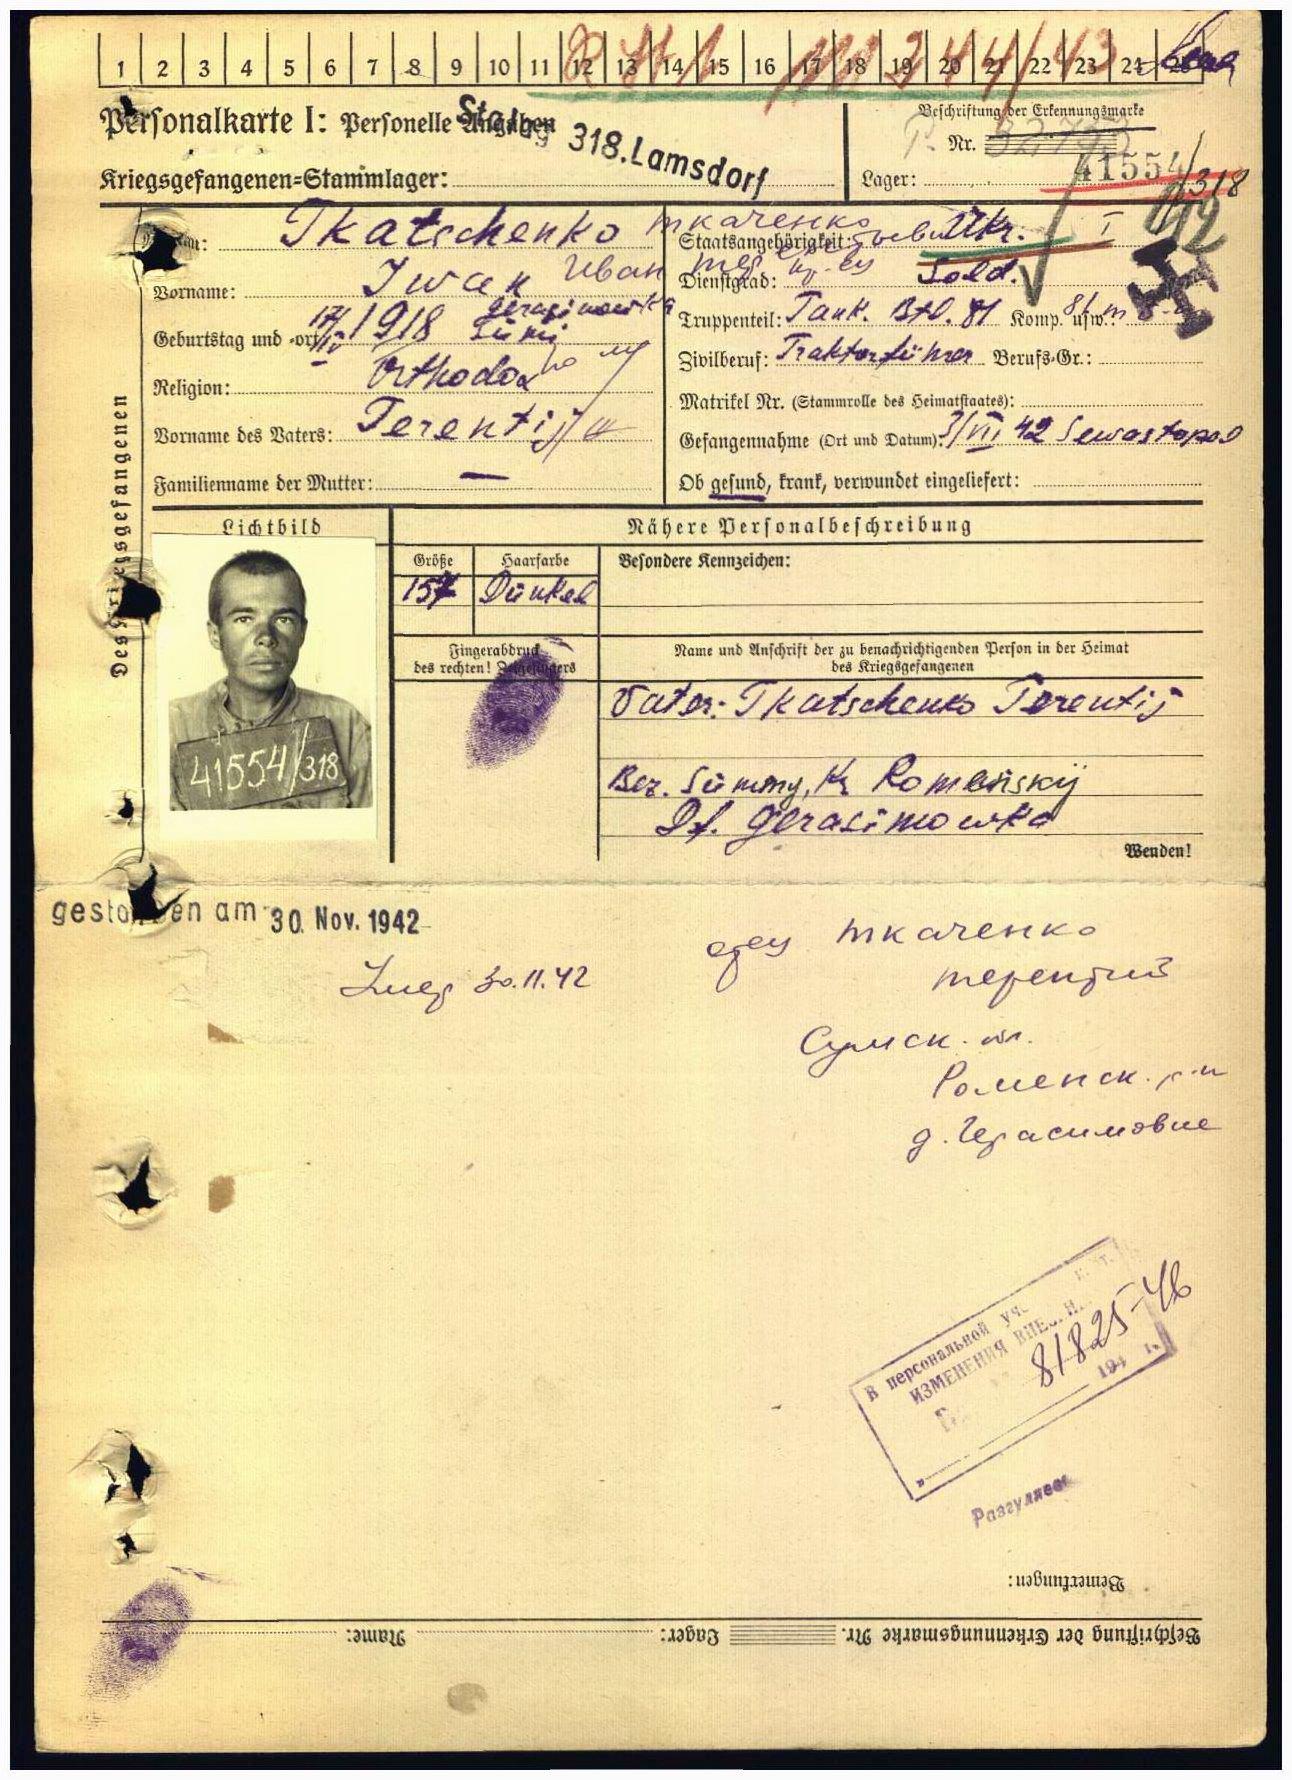 1 2 3 4 5 6 7 8 9 10 11 12 13 14 15 16 17 18 19 20 21 22 23 24 25
Personalkarte I: Personelle Angaben
Stalag 318. Lamsdorf
Kriegsgefangenen=Stammlager:
Beschriftung der Erkennungsmarke
Nr.
41554/318
Lager:
Name: Tkatschenko ткаченко
Vorname: Iwan Иван
Geburtstag und -ort: 17/IV 1918 Gerasimowka Sumi
Religion: Orthodox
Vorname des Vaters: Terentij
Familienname der Mutter: —
Staatsangehörigkeit: Ukr. I
Dienstgrad: Sold.
Truppenteil: Tank. Btl. 81 Komp. usw.:
Zivilberuf: Traktorfürer Berufs-Gr.:
Matrikel Nr. (Stammrolle des Heimatstaates):
Gefangennahme (Ort und Datum): 3/VII 42 Sewastopol
Ob gesund, krank, verwundet eingeliefert:
Des Kriegsgefangenen
Lichtbild
41554/318
Nähere Personalbeschreibung
Größe Haarfarbe Besondere Kennzeichen:
157 Dunkel
Fingerabdruck
des rechten! Zeigefingers
Name und Anschrift der zu benachrichtigenden Person in der Heimat
des Kriegsgefangenen
Vater: Tkatschenko Terentij
Bez. Summy, Kr. Romenskij
Df. Gerasimowka
Wenden!
gestorben am 30. Nov. 1942
Умер 30.11.42
отец ткаченко
терентий
Сумск. обл.
Роменск. р-н
д. Герасимовке
В персональной
ИЗМЕНЕНИЯ
81825-46
194 г.
Разгуляев
Bemerkungen:
Beschriftung der Erkennungsmarke Nr. Lager: Name: